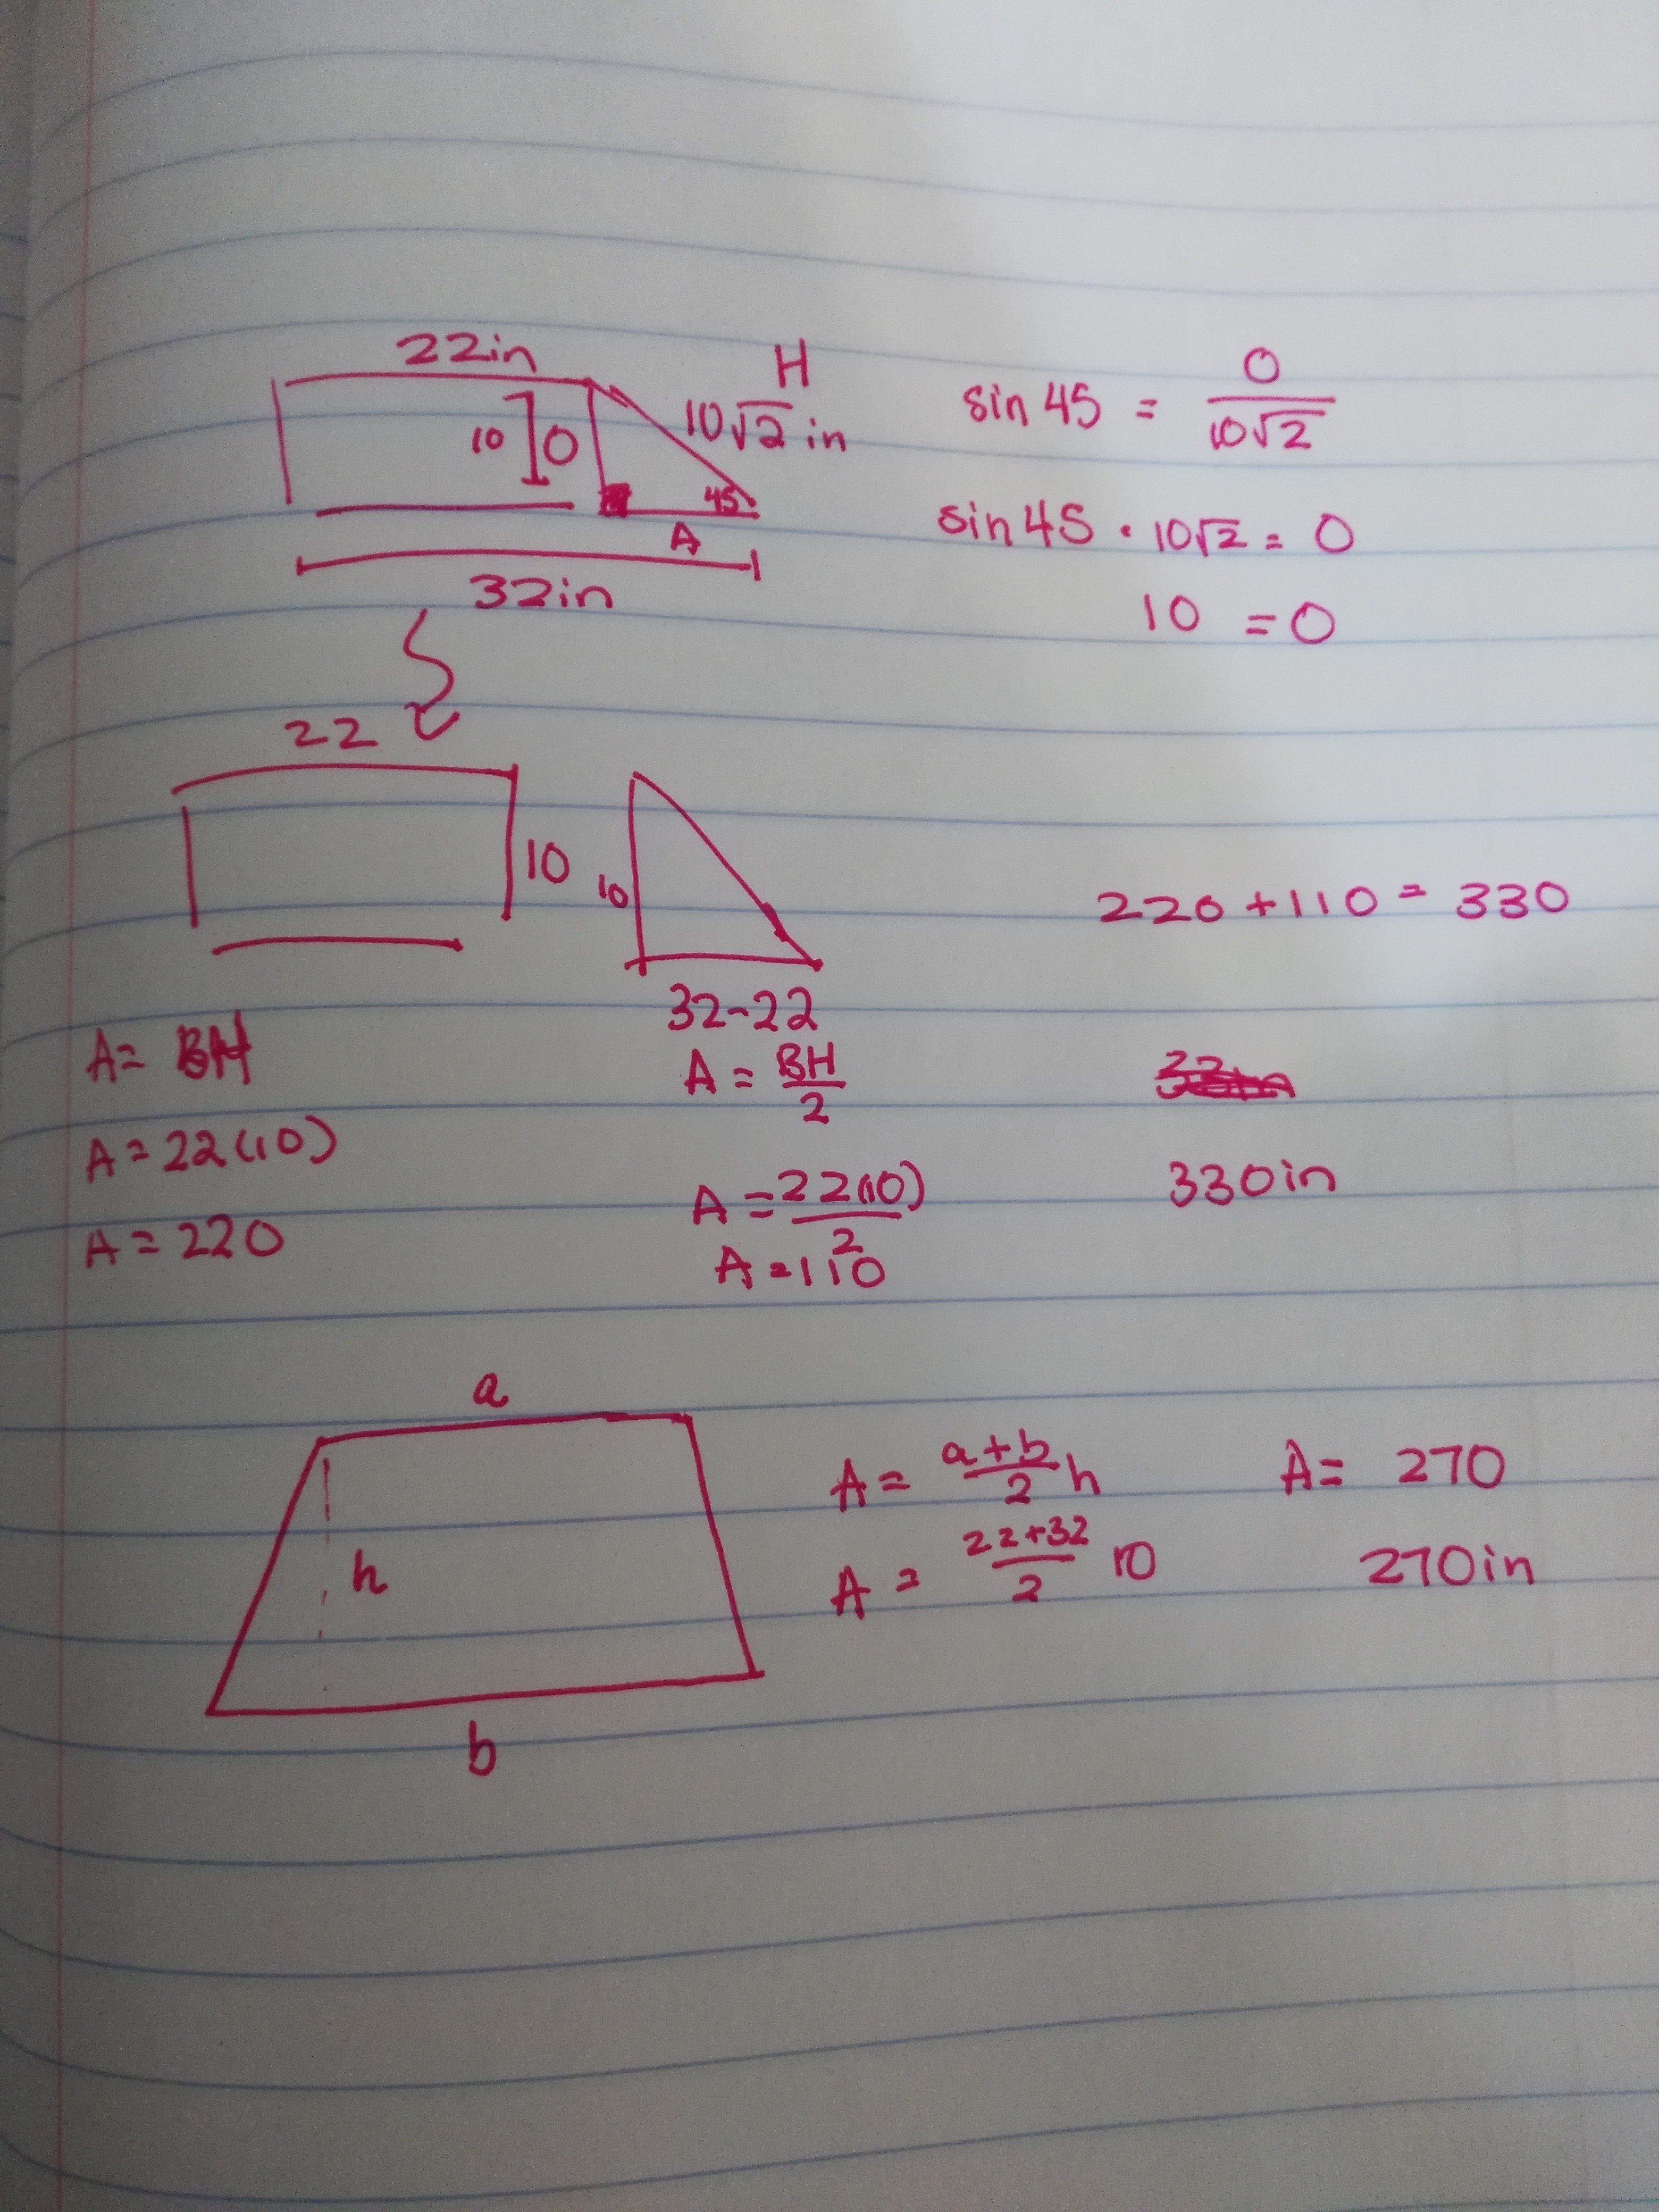 22in
H
10√2 in
10 ] O
45
A
32in
sin 45 = O/10√2
sin 45 · 10√2 = O
10 = O
22
10
10
32-22
220 + 110 = 330
A = BH
A = 22(10)
A = 220
A = BH/2
A = 22(10)/2
A = 110
330in
a
h
b
A = a+b/2 h
A = 22+32/2 10
A = 270
270in